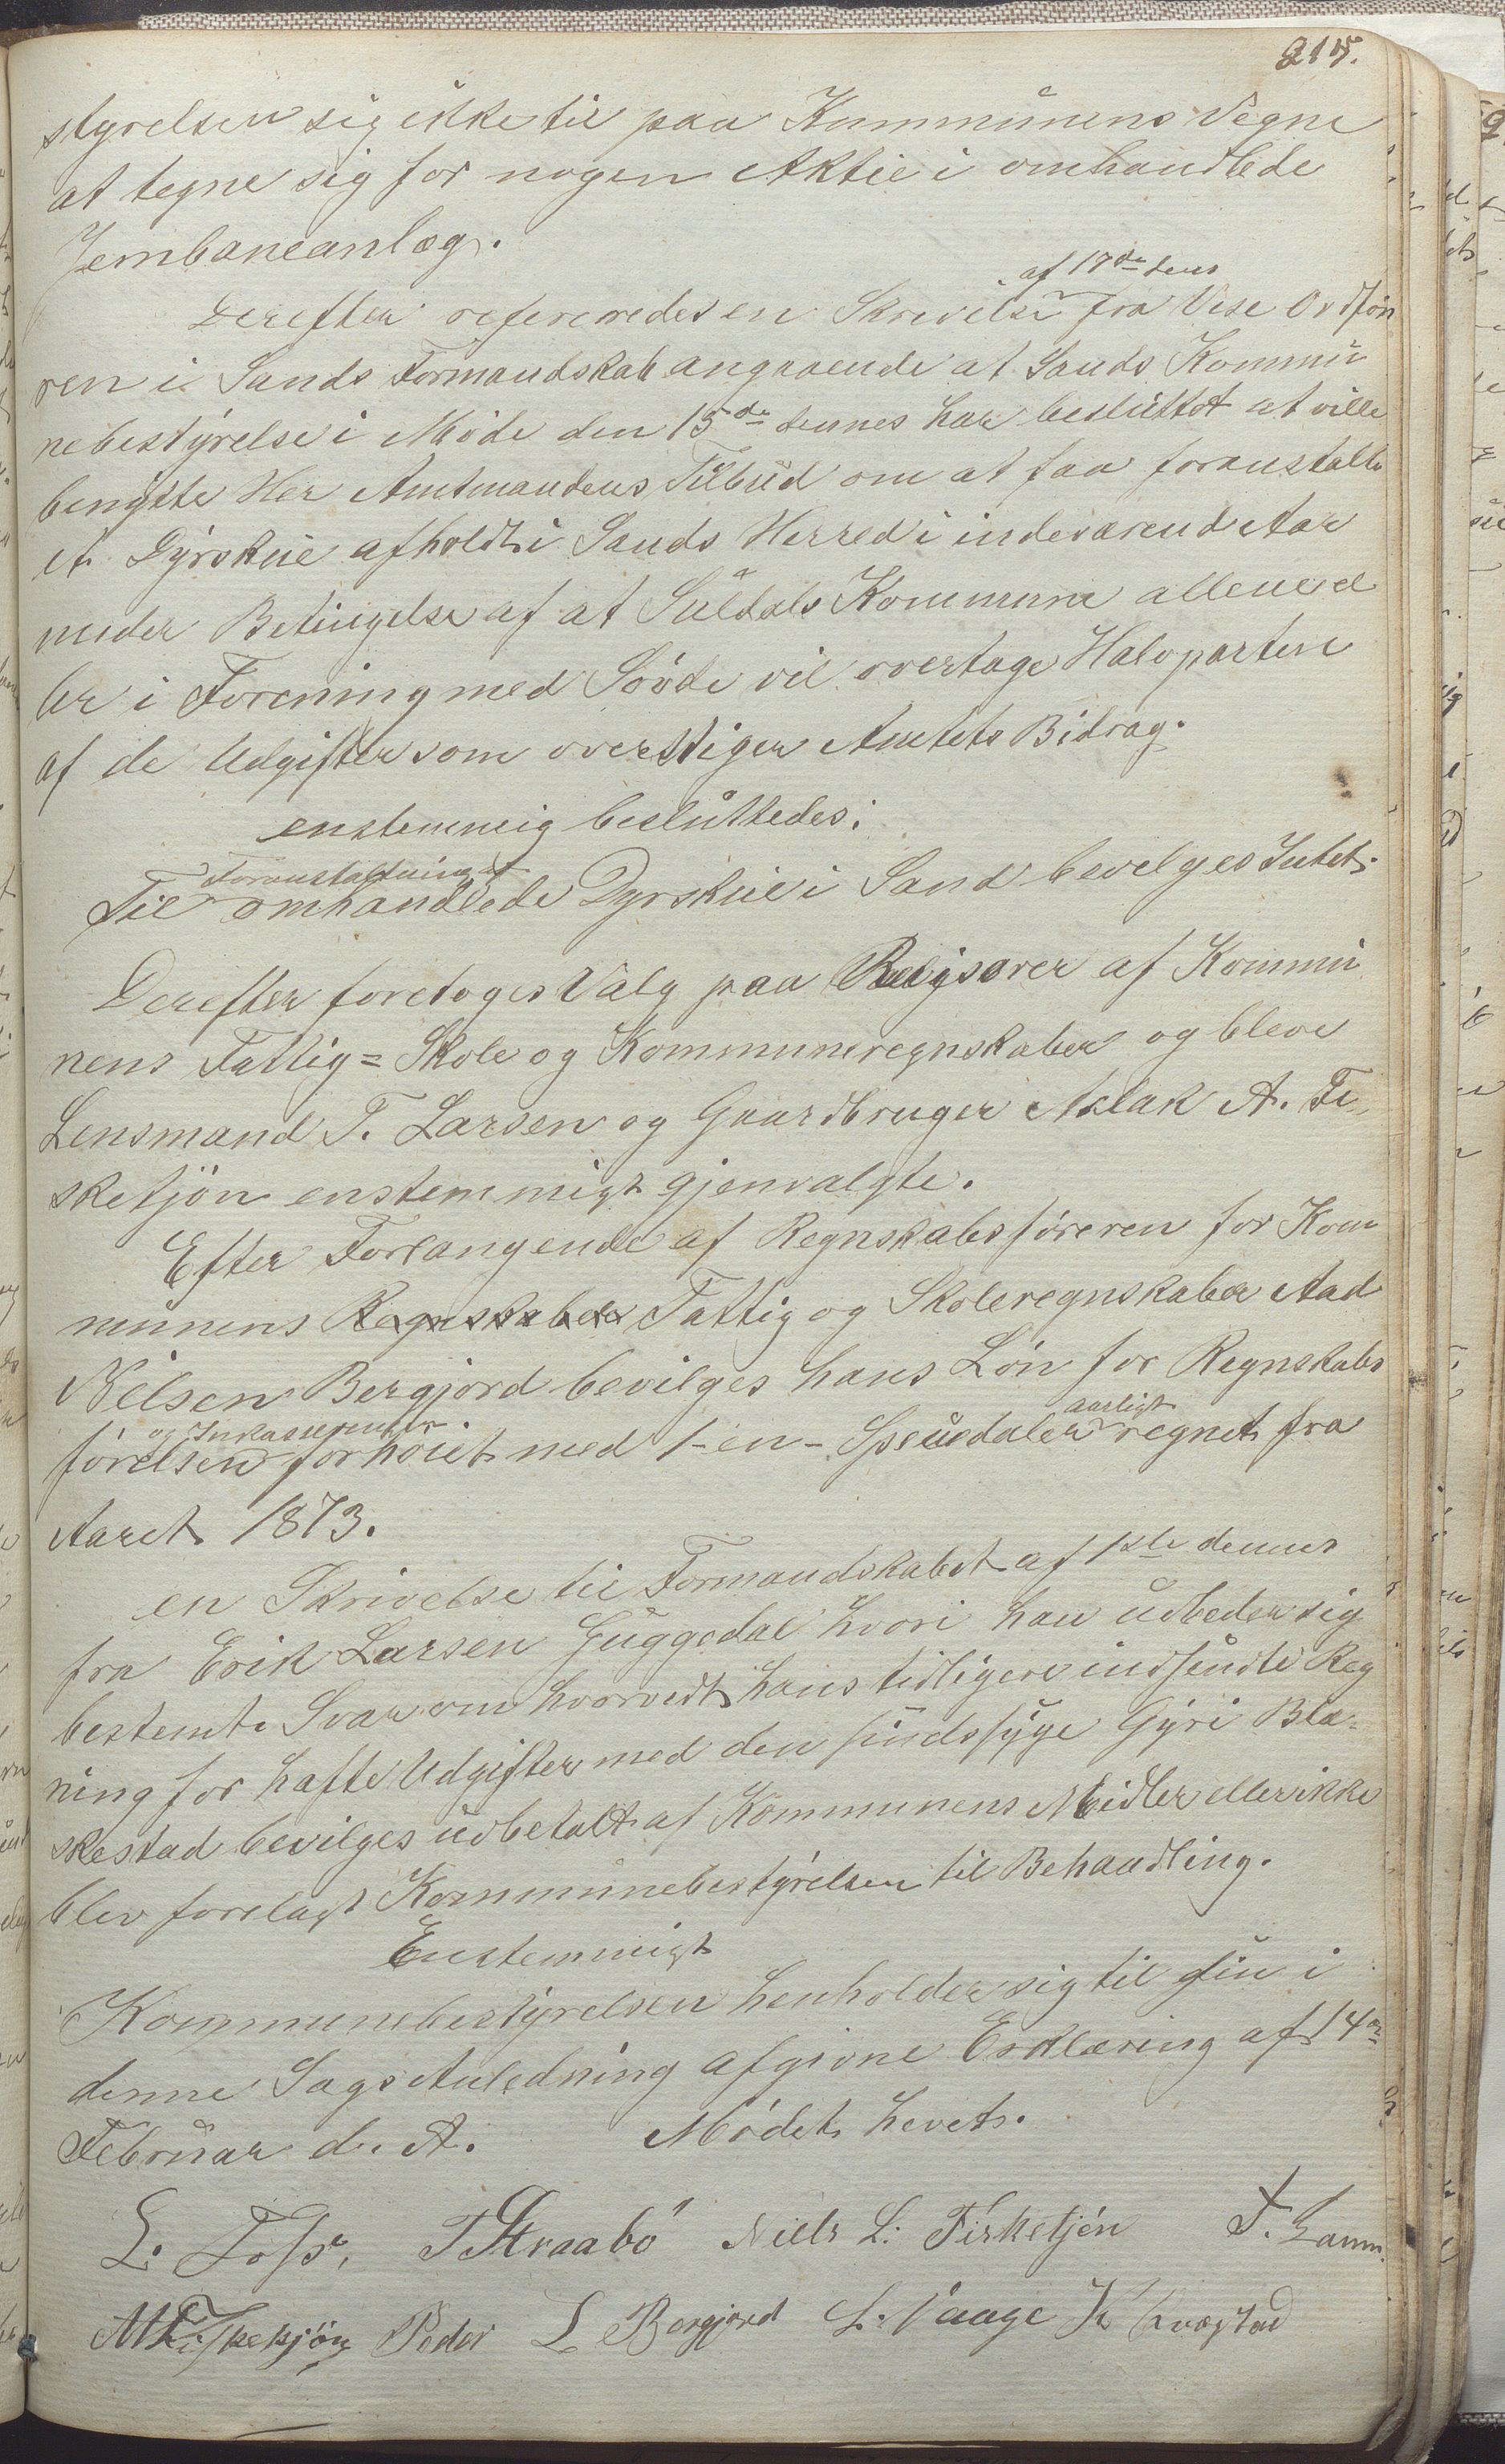 215.
styrelsen sig ikke til paa Kommunens Vegne
at tegne sig for nogen Aktie i omhandlede
Jernbaneanlæg.
af 17de dens
Derefter refereredes en Skrivelse fra Vise Ordfø
ren i Sands Formandskab angaaende at Sands Kommu
nebestyrelse i Møde den 15de dennes har besluttet at ville
benytte Her Amtmandens Tilbud om at faa foranstalte
et Dyrskue afholdt i Sands Herred i indeværende Aar
under Betingelse af at Suldals Kommune allene el
ler i Forening med Søvde vil overtage Halvparten
af de Udgifter som overstiger Amtets Bidrag.
enstemmig besluttedes:
Foranstaltning af
Til omhandlede Dyrskue i Sand bevilges Intet.
Derefter foretoges Valg paa Revisorer af Kommu
nens Fattig= Skole og Kommuneregnskaber og bleve
Lensmand T. Larsen og Gaardbruger Aslak A. Fi
sketjön enstemmigt gjenvalgte.
Efter Forlangende af Regnskabsføreren for Kom
munens Regnskaber Fattig og Skoleregnskaber Aad
Nilsen Bergjord bevilges hans Løn for Regnskabs
og Inkasserenter aarligt
førelsen forhøiet med 1-en- Speciedaler regnet fra
Aaret 1873.
en Skrivelse til Formandskabet af 1ste dennes
fra Erik Larsen Guggedal hvori han udbeder sig
bestemt Svar om hvorvidt hans tidligere indsendte Reg
ning for hafte Udgifter med den sindssyge Gyri Bla-
skestad bevilges udbetalt af Kommunens Midler eller ikke
blev forelagt Kommunebestyrelsen til Behandling.
Enstemmigt
Kommunebestyrelsen henholder sig til sin i
denne Sags Anledning afgivne Erklæring af 14de
Februar d. A. Mødet hevet.
L. T Straabø Niels L. Fisketjön T. Larsen
Fiskekjön Peder L Bergjord L. Vaage K Kvæstad